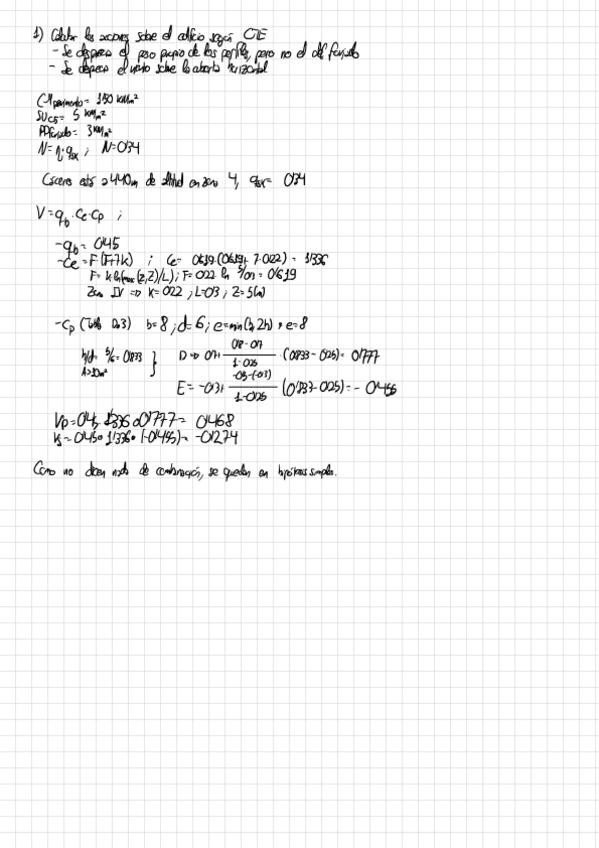 1) Calcular las acciones sobre el edificio según CTE
- Se desprecia el peso propio de los perfiles, pero no el del forjado
- Se desprecia el viento sobre la cubierta horizontal
CM pavimento = 1'50 kN/m²
SUC5 = 5 kN/m²
PPforjado = 3 kN/m²
N = η · qsk ; N = 0'34
Cáceres está a 440m de altitud en zona 4, qsk = 0'34
V = qb · Ce · Cp ;
- qb = 0'45
- Ce = F (F+7k) ; Ce = 0'619 · (0'619 + 7·0'22) = 1'336
F = k ln(max(z,Z)/L) ; F = 0'22 ln 5/0'3 = 0'619
Zona IV => k = 0'22 , L = 0'3 , Z = 5(m)
- Cp (Tabla D.3) b = 8 ; d = 6 ; e = min(b, 2h) , e = 8
h/d = 5/6 = 0'833
A > 10m²
} D => 0'7 + (0'8 - 0'7)/(1 - 0'25) · (0'833 - 0'25) = 0'777
E = -0'3 + (-0'5-(-0'3))/(1 - 0'25) (0'833 - 0'25) = - 0'455
Vp = 0'45 · 1'336 · 0'777 = 0'468
Vs = 0'45 · 1'336 · (-0'455) = -0'274
Como no dicen nada de combinación, se quedan en hipótesis simples.